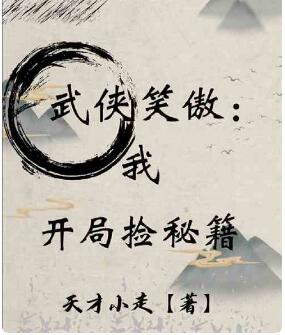 武侠笑傲：
我
开局捡秘籍
天才小走【著】